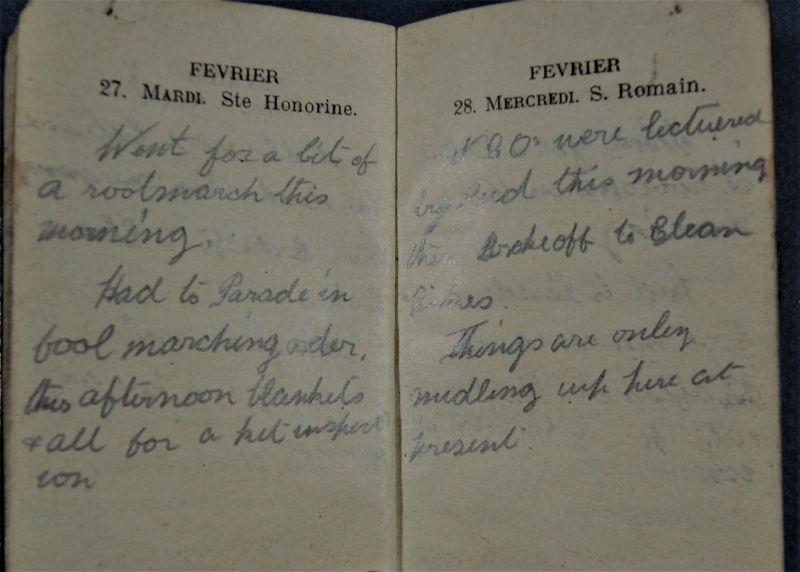 FEVRIER
27. MARDI. Ste Honorine.
Went for a bit of
a rootmarch this
morning.
Had to Parade in
fool marching order,
this afternoon blankets
& all for a kit inspect
ion
FEVRIER
28. MERCREDI. S. Romain.
N.C.O's were lectured
by this morning
then Brokeoff to Clean
Bikes.
Things are only
midling up here at
present.